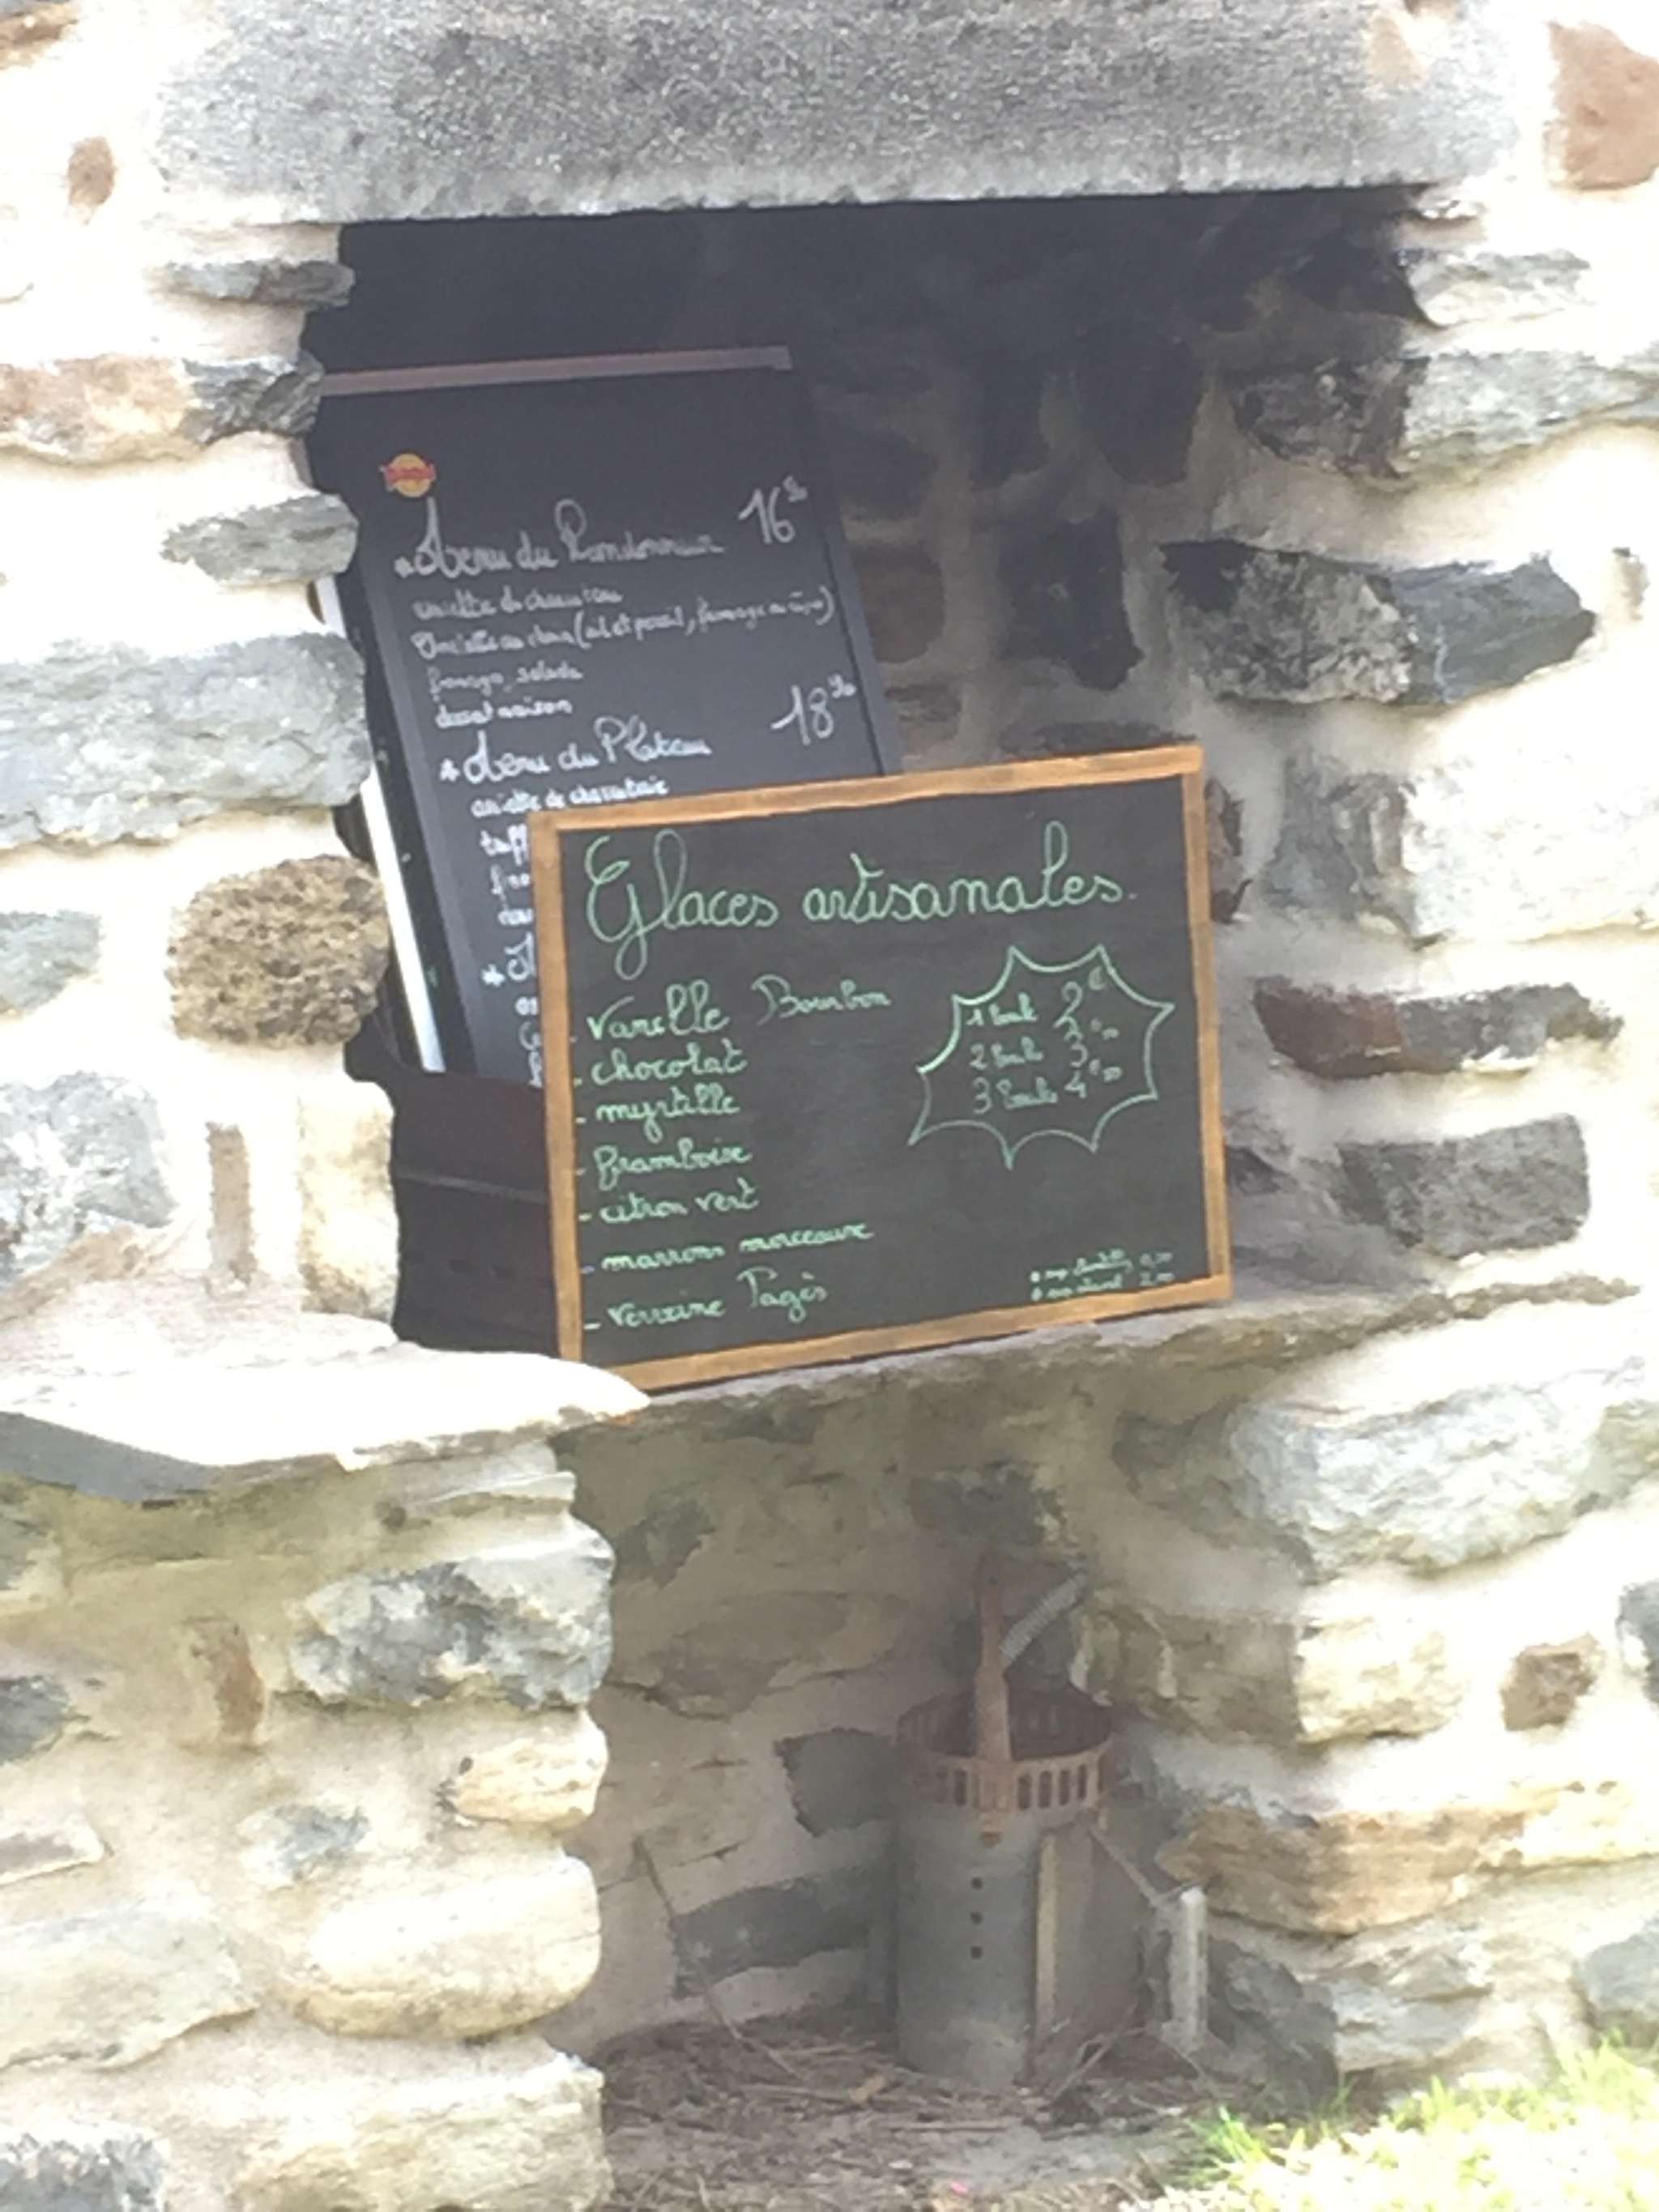 * Menu du Randonneur 16
assiette de charcuterie
Omelette au choix (ail et persil, fromage ou cèpes)
fromage, salade
dessert maison
* Menu du Plateau 18
assiette de charcuterie
truff
fro
*
Glaces artisanales.
- Vanille Bourbon
- chocolat
- myrtille
- framboise
- citron vert
- marrons morceaux
- verveine Pagès
1 boule 2€
2 boule 3€00
3 boule 4€00